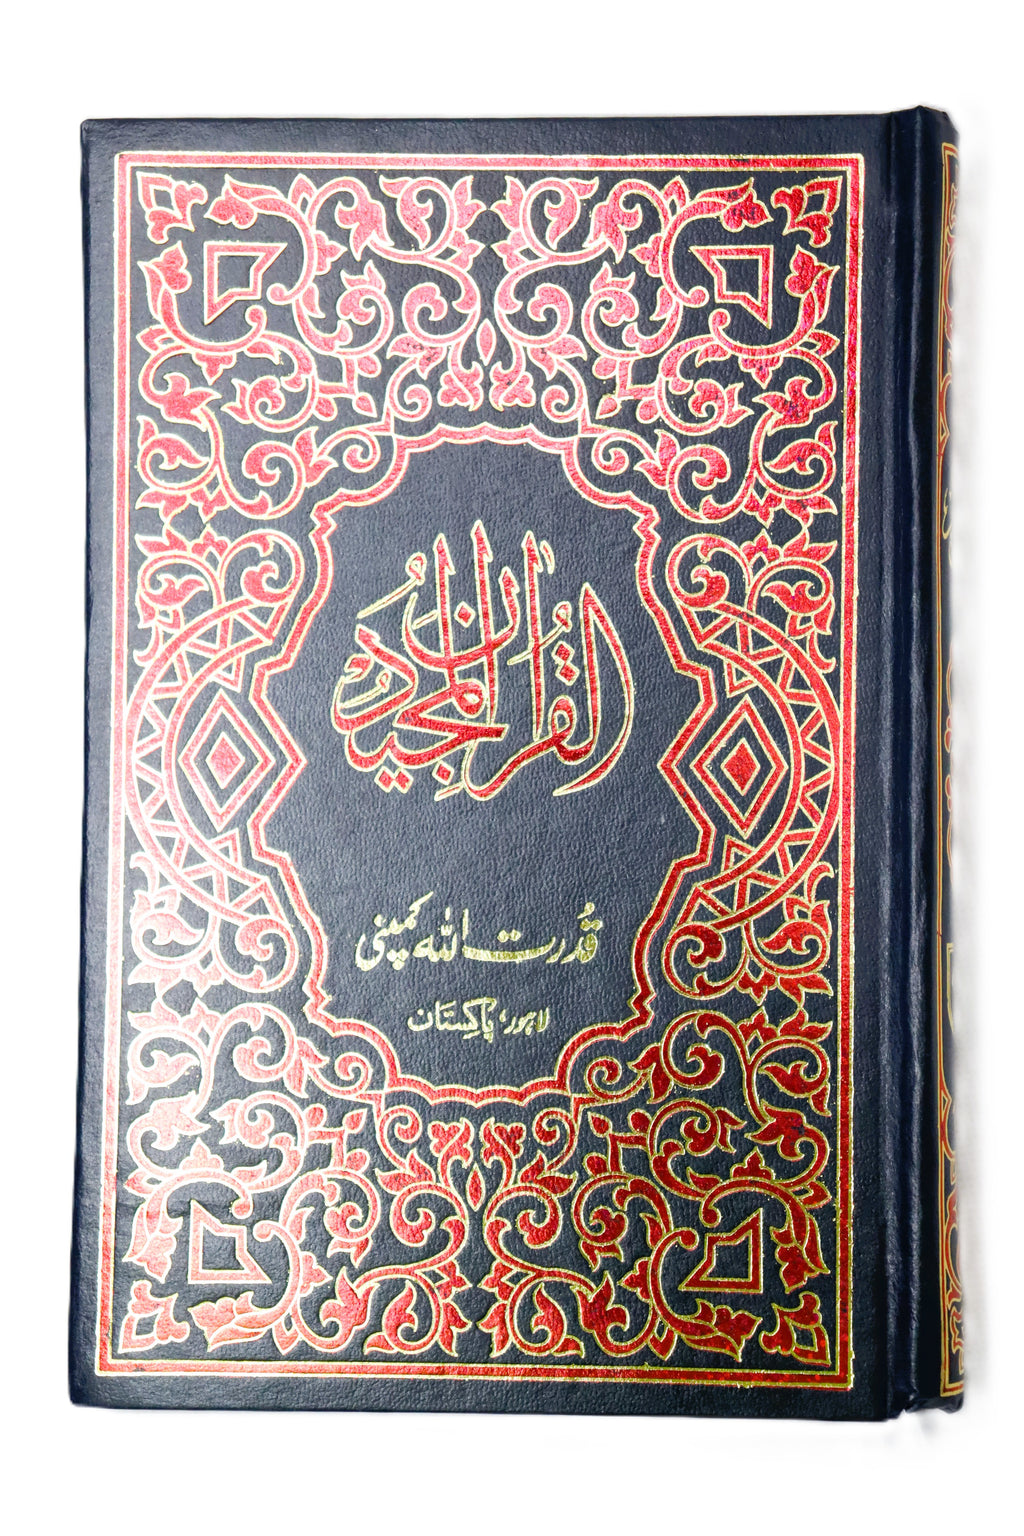 القرآن المجيد
قُدرت اللہ کمپنی
لاہور، پاکستان